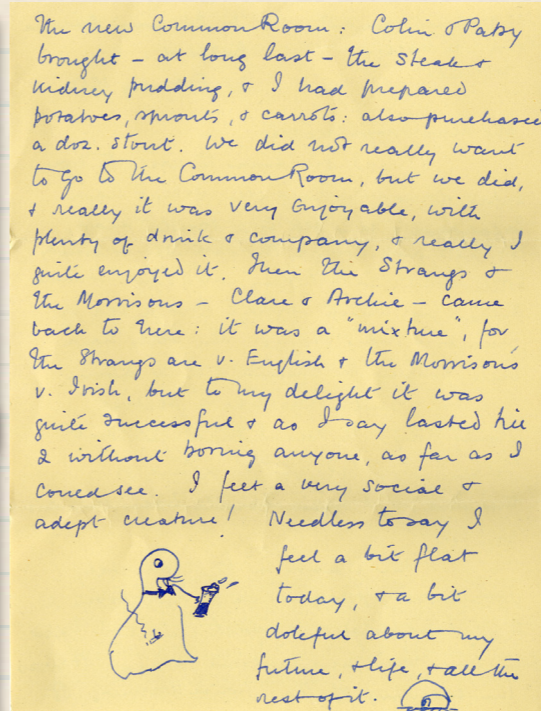 the new Common Room: Colin & Patsy
brought – at long last – the steak &
kidney pudding, & I had prepared
potatoes, sprouts, & carrots: also purchased
a doz. stout. We did not really want
to go to the Common Room, but we did,
& really it was very enjoyable, with
plenty of drink & company, & really I
quite enjoyed it. Then the Strangs &
the Morrisons – Clare & Archie – came
back to here: it was a "mixture", for
the Strangs are v. English & the Morrisons
v. Irish, but to my delight it was
quite successful & as I say lasted till
2 without boring anyone, as far as I
could see. I feel a very social &
adept creature! Needless to say I
feel a bit flat
today, & a bit
doleful about my
future, & life, & all the
rest of it.